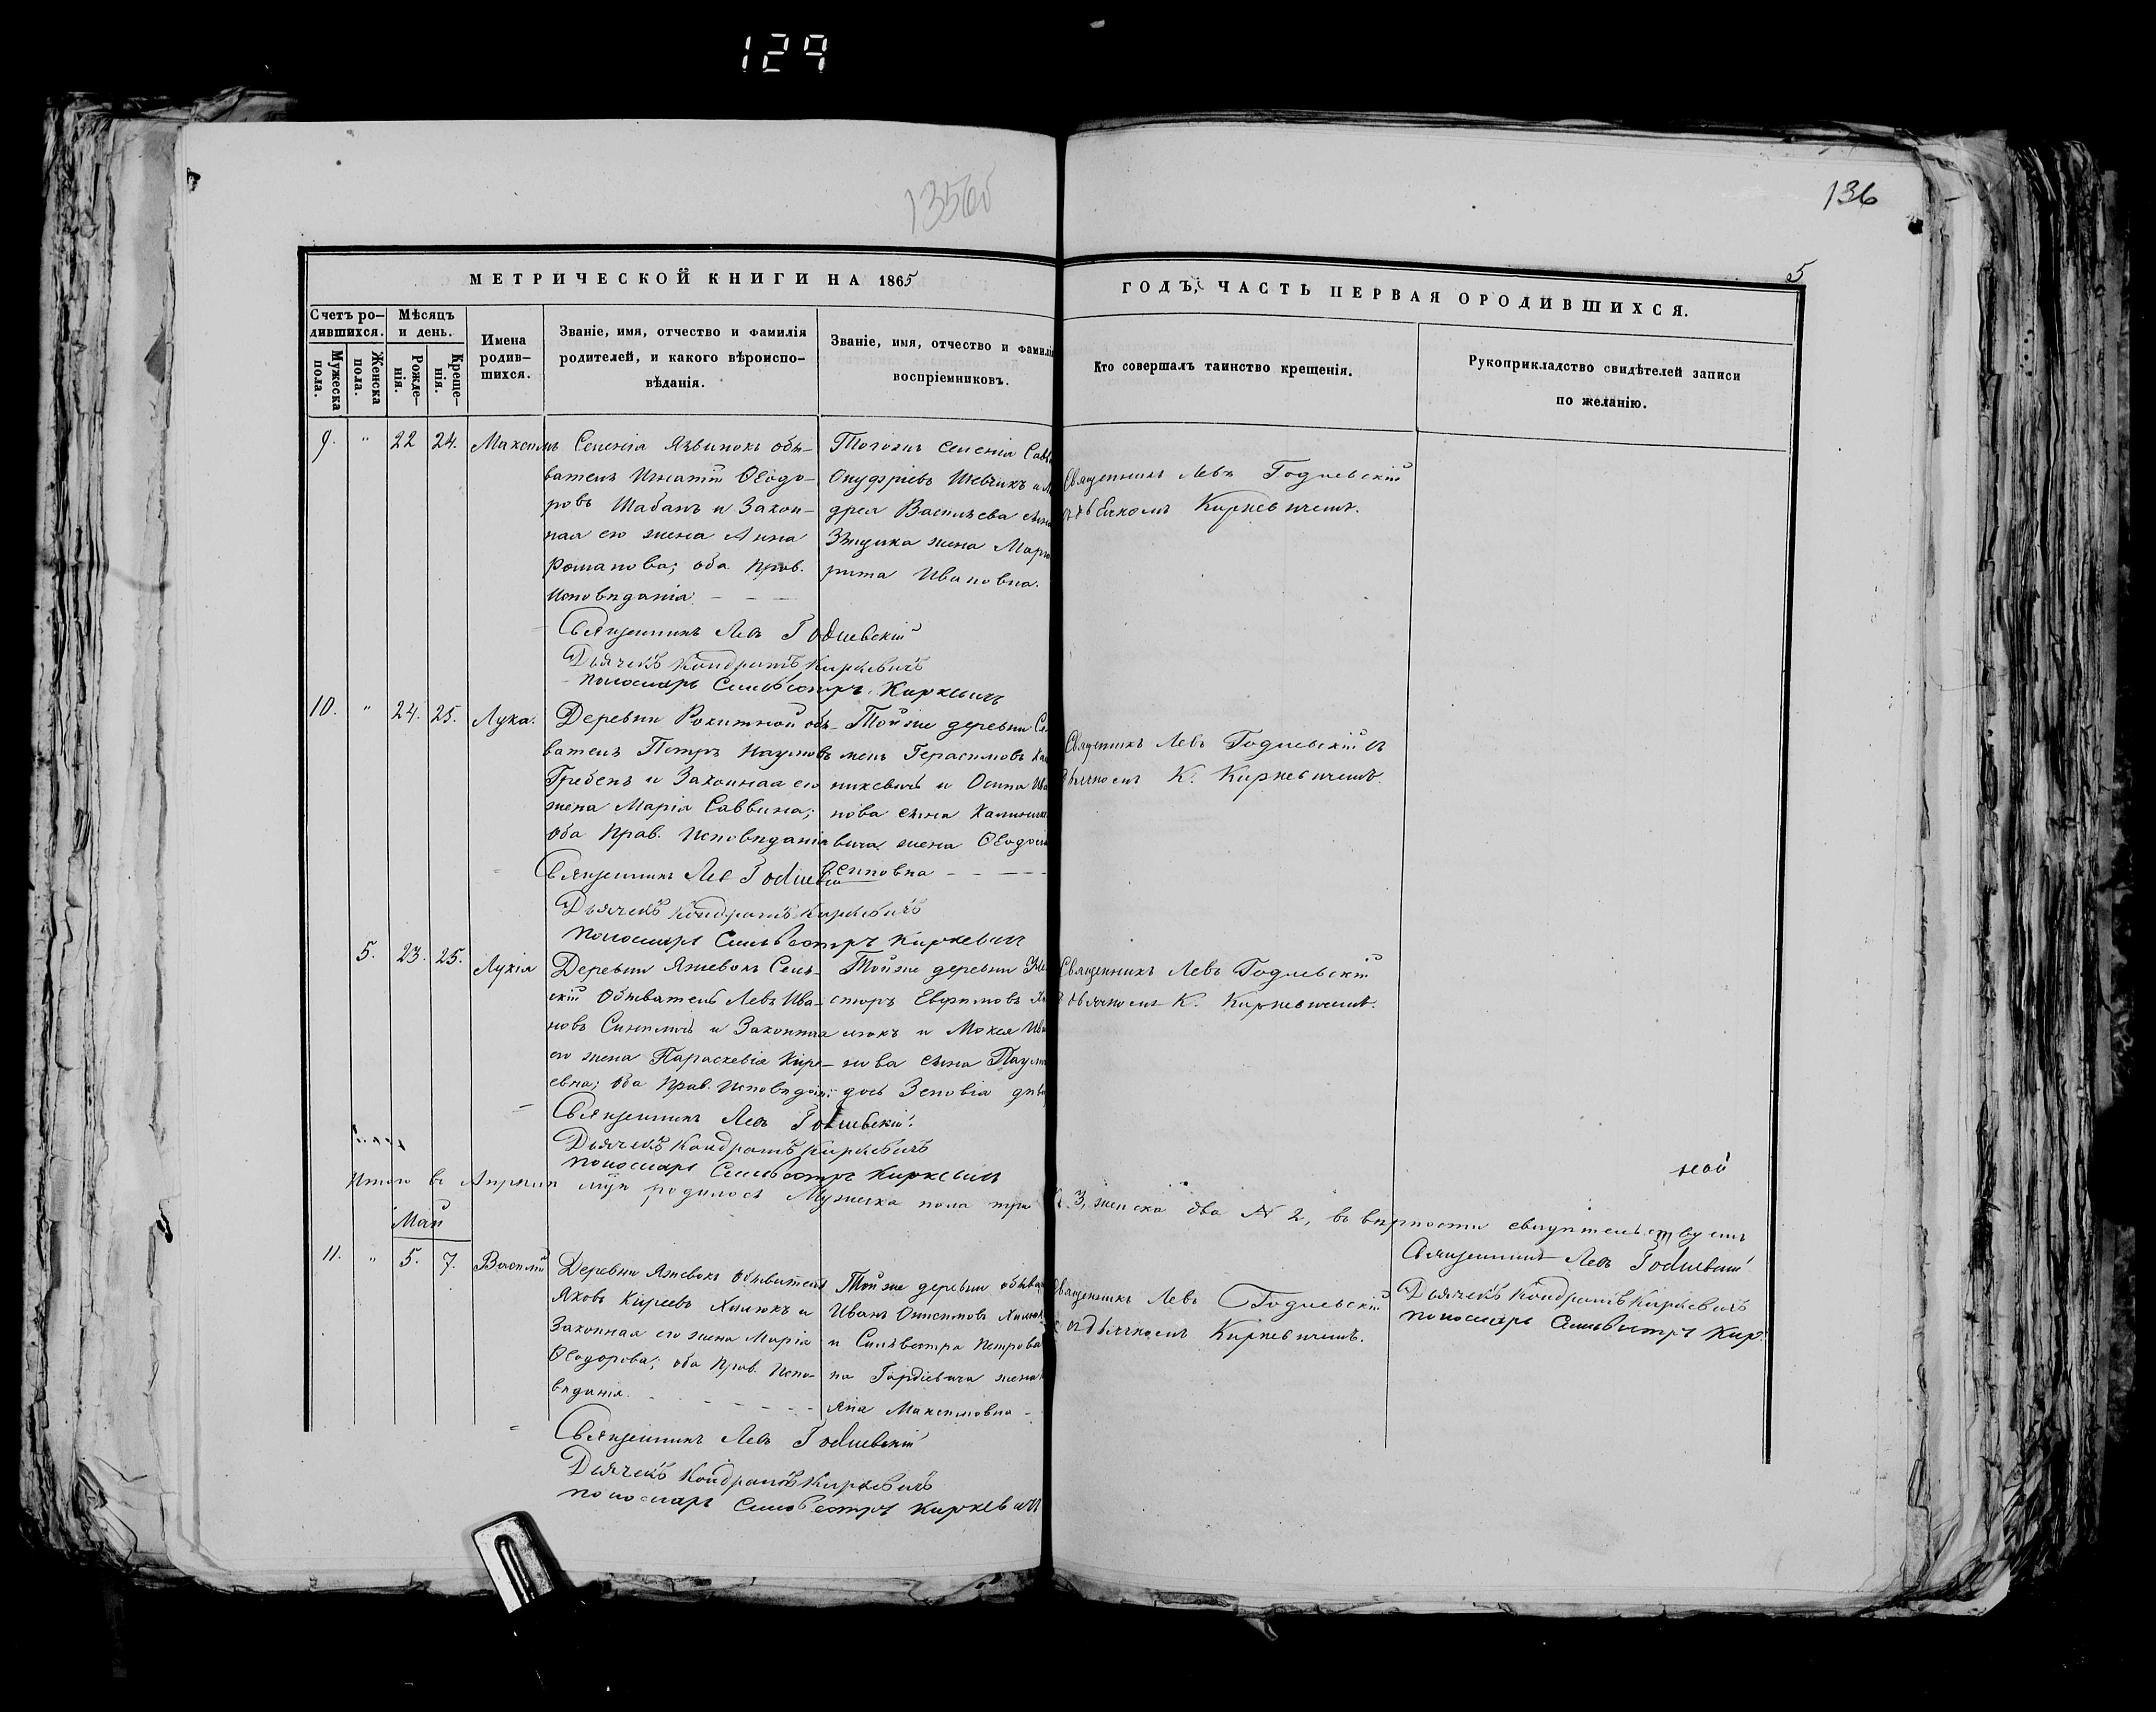 129
136
5
МЕТРИЧЕСКОЙ КНИГИ НА 1865
ГОДЪ, ЧАСТЬ ПЕРВАЯ О РОДИВШИХСЯ.
Счетъ ро-
дившихся.
Мужеска
пола.
Женска
пола.
Мѣсяцъ
и день.
Рожде-
нія.
Креще-
нія.
Имена
родив-
шихся.
Званіе, имя, отчество и фамилія
родителей, и какого вѣроиспо-
вѣданія.
Званіе, имя, отчество и фамилі
воспріемниковъ.
Кто совершалъ таинство крещенія.
Рукоприкладство свидѣтелей записи
по желанію.
9. " 22 24. Максимъ
Селенія обы-
ватель Игнатій Ѳеодо-
ровъ Шабанъ и Закон-
ная его жена Анна
Романова; оба Прав.
Исповѣданія - - -
Тогожъ селенія
Онуфріевъ Шевчикъ и
дрея Васильева сына
жена Марга
рита Ивановна.
Священникъ Левъ Годлевскій
съ дьячкомъ Киркевичемъ.
Священникъ Левъ Годлевскій
Дьячекъ Кондратъ Киркевичъ
пономарь Сильвестръ Киркевичъ
10. " 24. 25. Лука.
Деревни Рокитной обы-
ватель Петръ Наумовъ
Гребень и Законная его
жена Марія Саввина;
оба Прав. Исповѣданія
Тойже деревни Се
менъ Герасимовъ
никевичъ и Осипа Ива
нова сына
вича жена Ѳеодосія
Осиповна - - - -
Священникъ Левъ Годлевскій съ
дьячкомъ К. Киркевичемъ.
Священникъ Левъ Годлевскій
Дьячекъ Кондратъ Киркевичъ
пономарь Сильвестръ Киркевичъ
5. 23. 25. Лукія
Деревни Яжевокъ Сель-
скій Обыватель Левъ Ива-
новъ и Законная
его жена Параскевія Кире-
евна; Оба Прав. Исповѣданія
Тойже деревни
Евфимовъ
и Мокея
нова сына
Зеновія
Священникъ Левъ Годлевскій
дьячкомъ К. Киркевичемъ.
Священникъ Левъ Годлевскій.
Дьячекъ Кондратъ Киркевичъ
пономарь Сильвестръ Киркевичъ
Итого въ Апрѣлѣ м-цѣ родилось Мужеска пола три № 3, женска два № 2, въ вѣрности свидѣтельствуемъ
Священникъ Левъ Годлевскій
Дьячекъ Кондратъ Киркевичъ
пономарь Сильвестръ Кир.
Май
11. " 5. 7. Василій
Деревни Яжевокъ Обыватель
Яковъ Киреевъ Хилюкъ и
Законная его жена Марія
Ѳеодорова; оба Прав. Испо-
вѣданія. - - - - - -
Тойже деревни обыва
Иванъ Онисимовъ Хилюкъ
и Сильвестра Петрова
на Гордіевича жена
Яна Максимовна -
Священникъ Левъ Годлевскій
съ дьячкомъ Киркевичемъ.
Священникъ Левъ Годлевскій
Дьячекъ Кондратъ Киркевичъ
пономарь Сильвестръ Киркевичъ